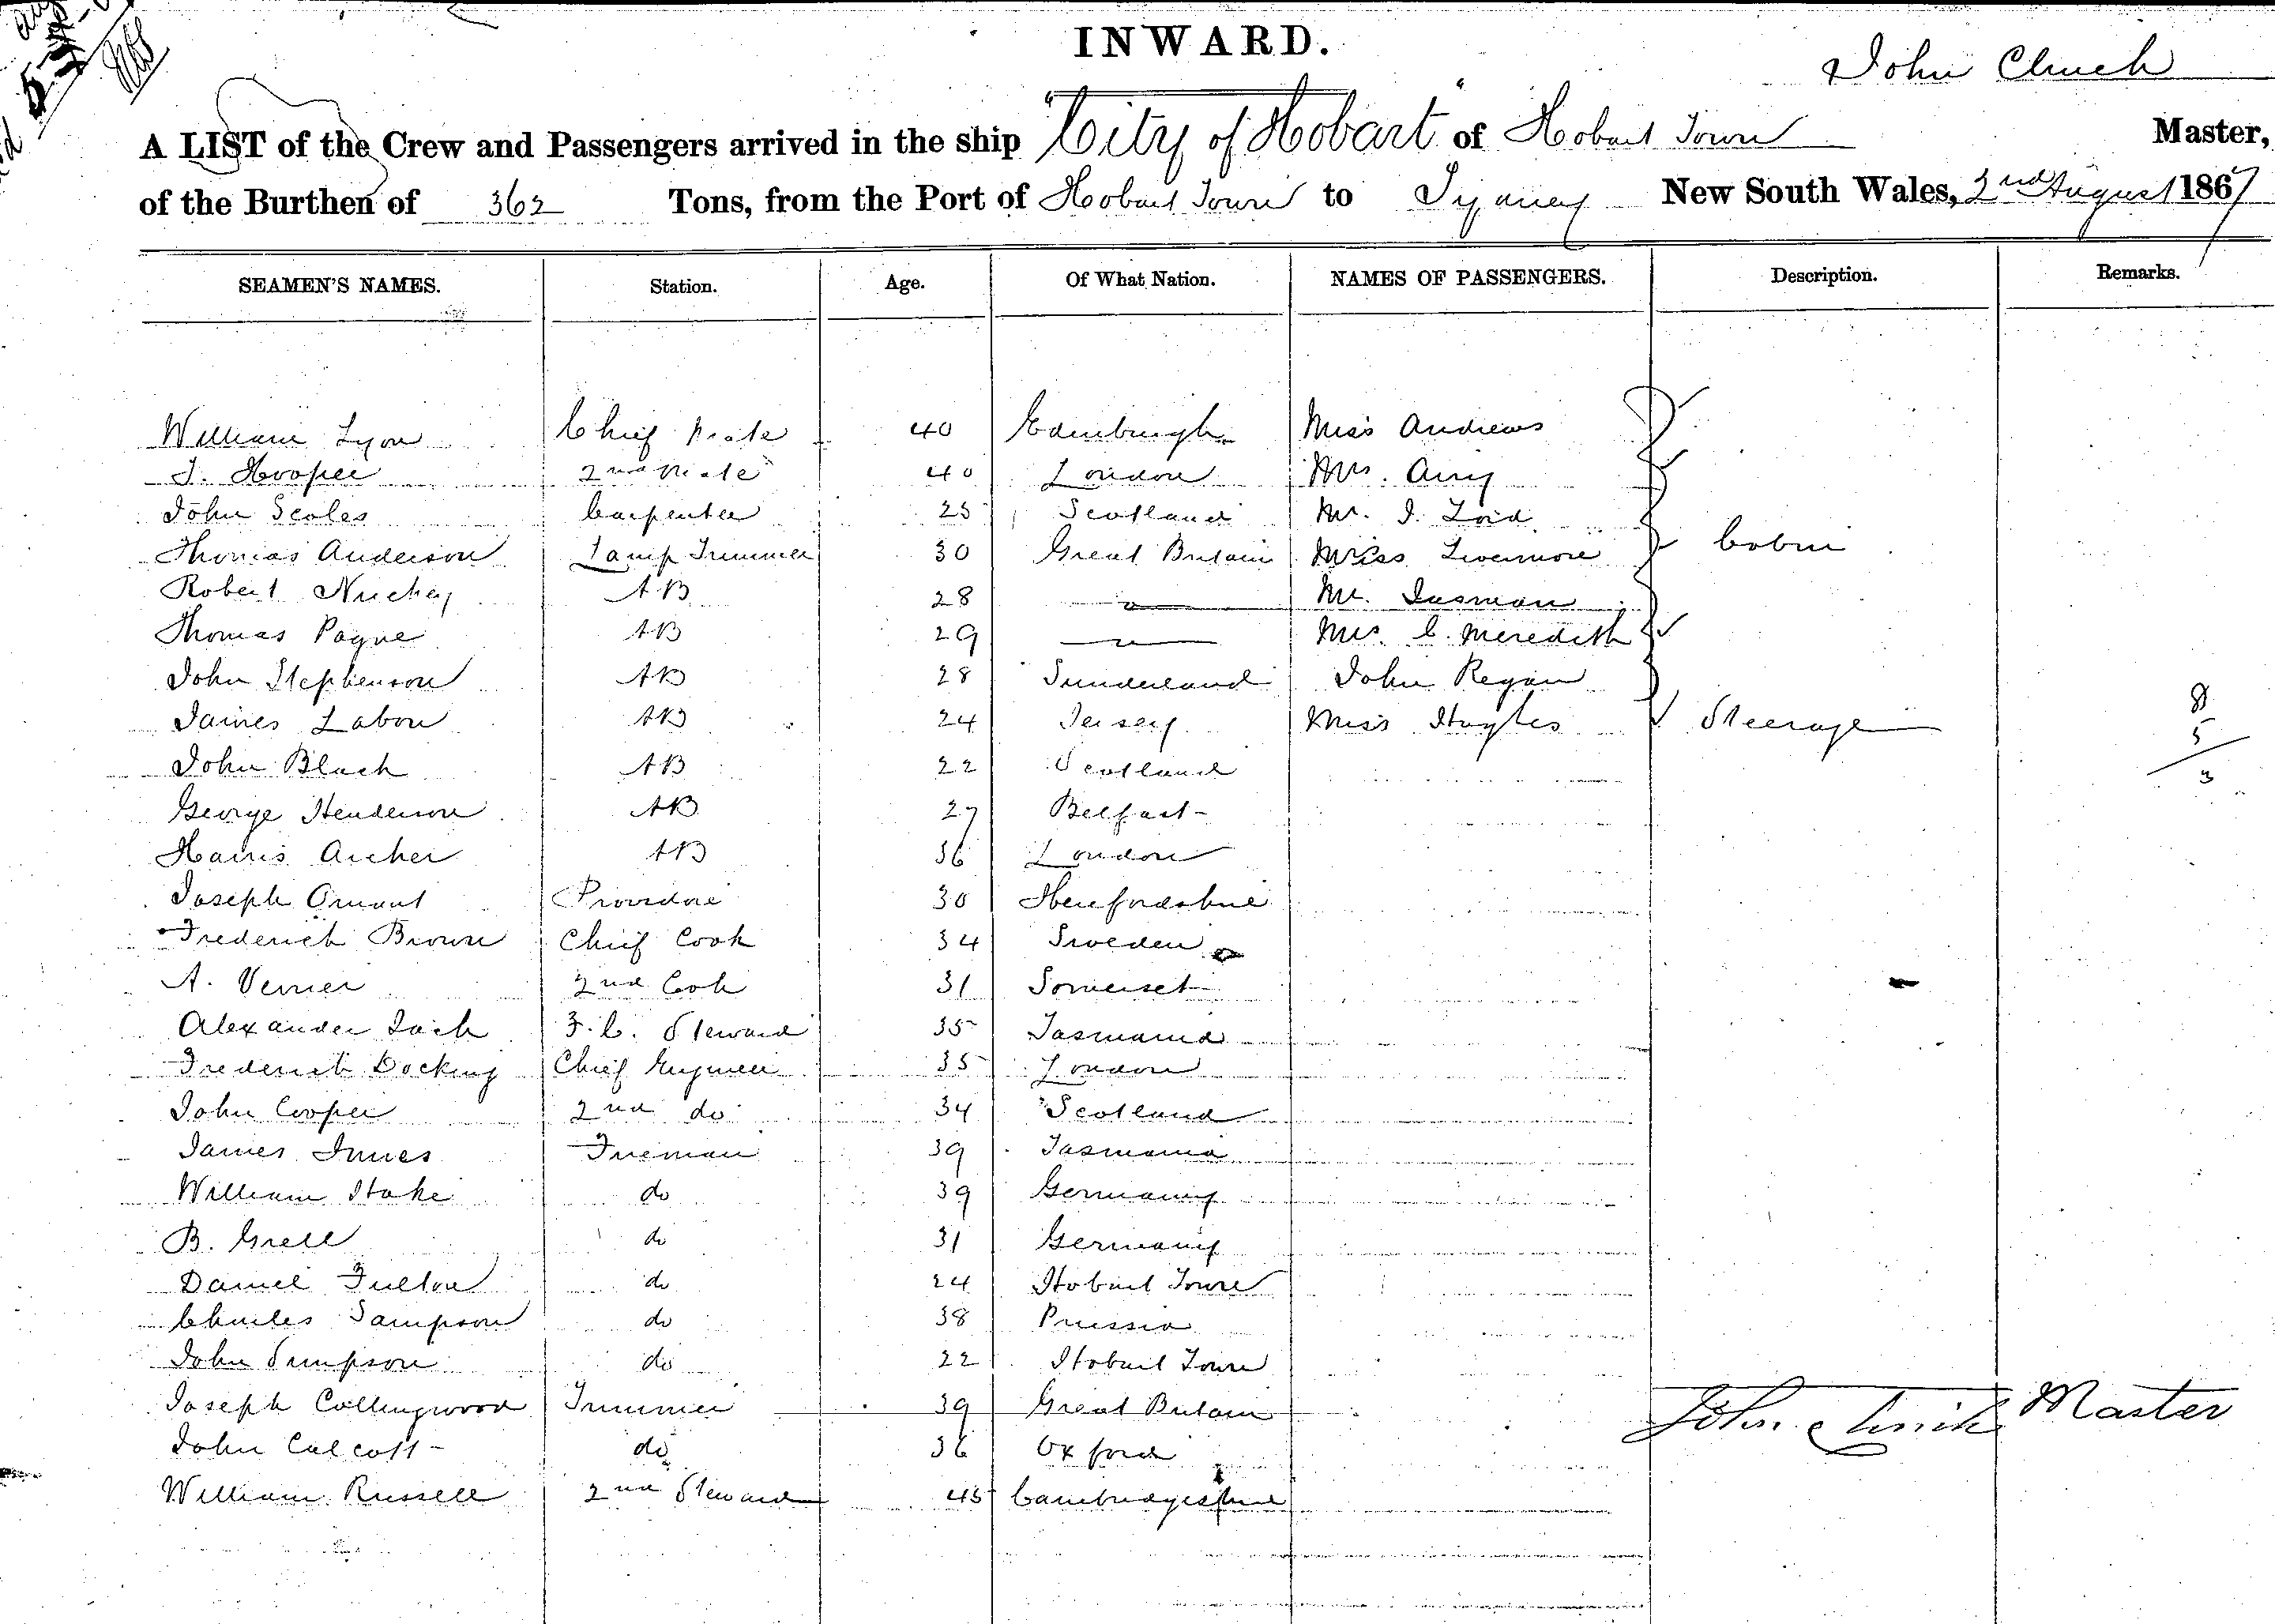 INWARD.
John Clinch
A LIST of the Crew and Passengers arrived in the ship "City of Hobart" of Hobart Town Master,
of the Burthen of 362 Tons, from the Port of Hobart Town to Sydney New South Wales, 2nd August 1867
SEAMEN'S NAMES. Station. Age. Of What Nation. NAMES OF PASSENGERS. Description. Remarks.
William Lyon Chief Mate 40 Edinburgh Miss Andrews
J. Hooper 2nd Mate 40 London Mrs. Amy
John Scoles Carpenter 25 Scotland Mr. J. Lord
Thomas Anderson Lamp Trimmer 30 Great Britain Miss Livermore Cabin
Robert AB 28 " Mr.
Thomas Payne AB 29 " Mrs. C. Meredith
John Stephenson AB 28 Sunderland John Regan
James Labon AB 24 Jersey Miss Hughes Steerage 8
5
John Black AB 22 Scotland 3
George Henderson AB 27 Belfast
Harris Archer AB 36 London
Joseph Providore 30 Herefordshire
Frederick Brown Chief Cook 34 Sweden
A. Verrier 2nd Cook 31 Somerset
Alexander Jack F.C. Steward 35 Tasmania
Frederick Docking Chief Engineer 35 London
John Cooper 2nd do 34 Scotland
James Innes Fireman 39 Tasmania
William Hake do 39 Germany
B. Grell do 31 Germany
Daniel Fulton do 24 Hobart Town
Charles Sampson do 38 Prussia
John Simpson do 22 Hobart Town
Joseph Collingwood Trimmer 39 Great Britain John Clinch Master
John Calcott do 36 Oxford
William Russell 2nd Steward 45 Cambridgeshire